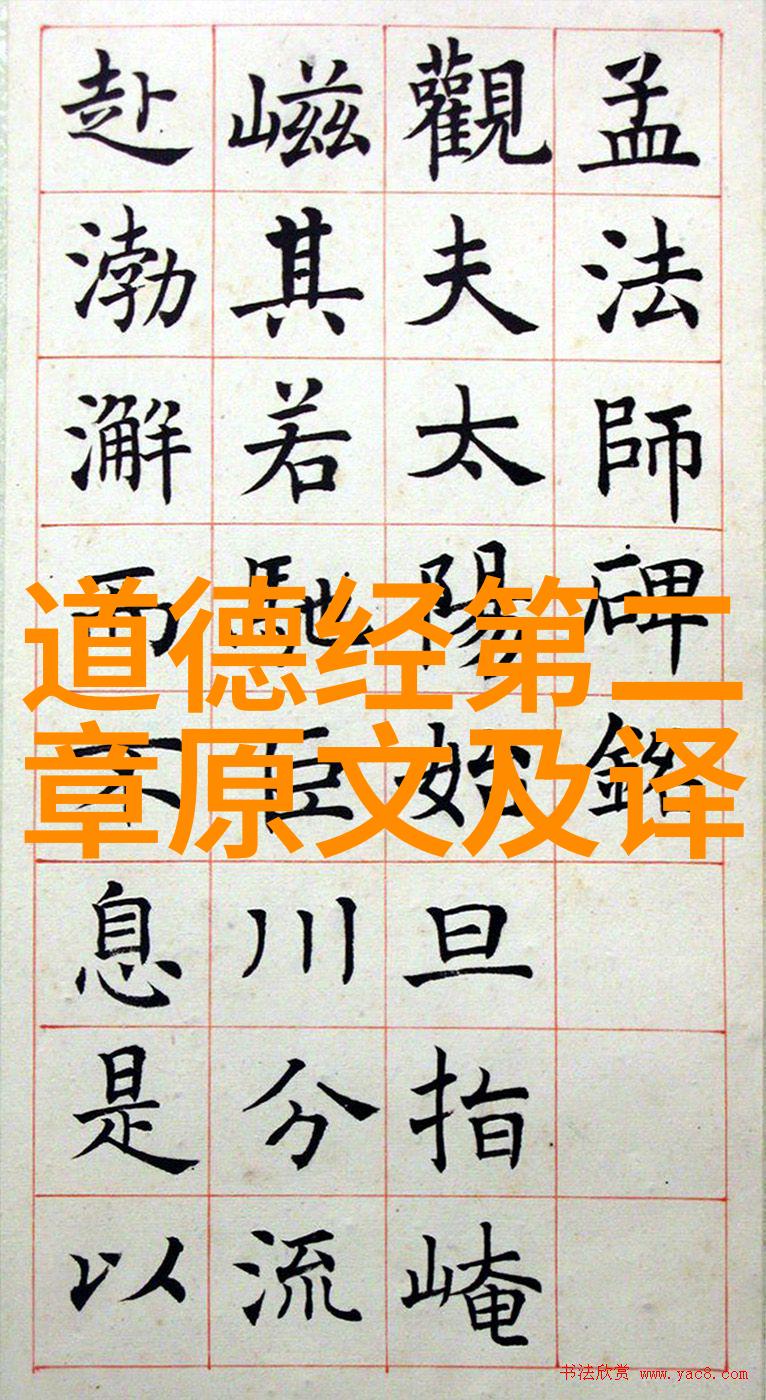 孟法師碑銘
觀夫太陽始旦指崦
嵫其若馳巨川分流
赴渤澥而不息是以
道德经第二
章原文及译
书法欣赏 www.yac8.com